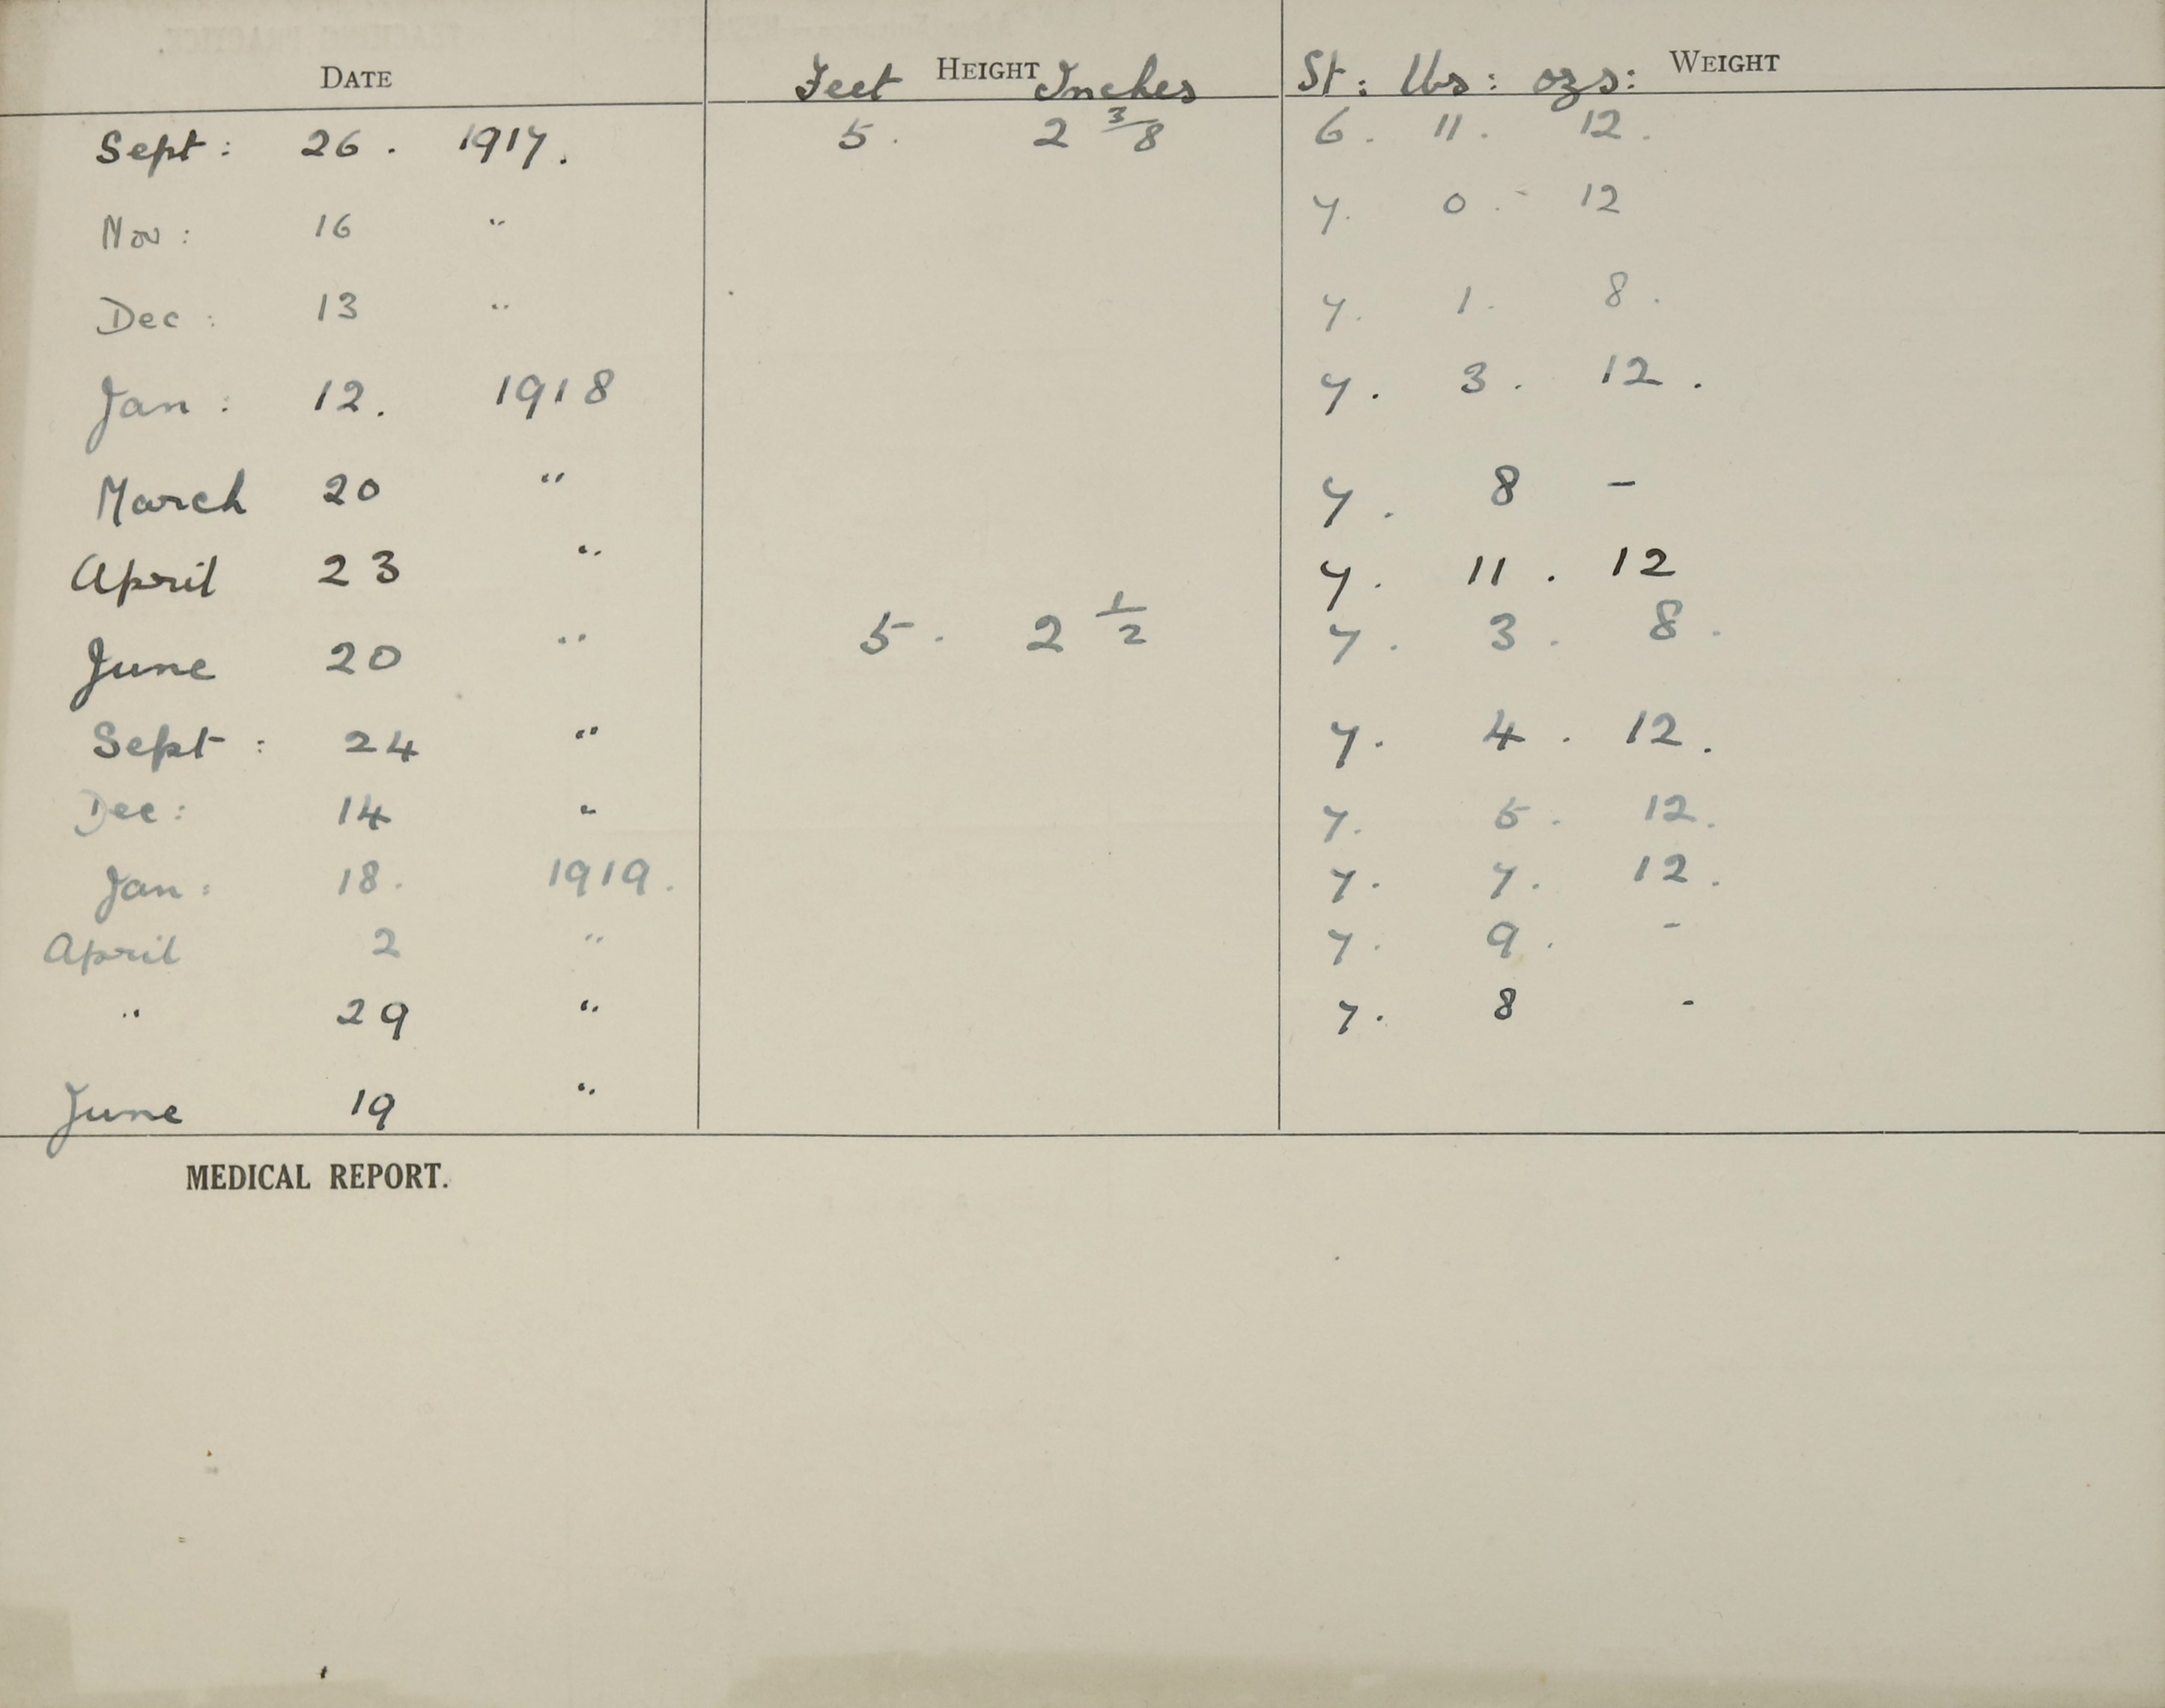 DATE Feet HEIGHT Inches St: lbs: ozs: WEIGHT
Sept: 26. 1917. 5. 2 3/8 6. 11. 12.
Nov: 16 " 7. 0. - 12
Dec: 13 " 7. 1. 8.
Jan: 12. 1918 7. 3. 12.
March 20 " 7. 8 -
April 23 " 7. 11. 12
June 20 " 5. 2 1/2 7. 3. 8.
Sept: 24 " 7. 4. 12.
Dec: 14 " 7. 5. 12.
Jan: 18. 1919. 7. 7. 12.
April 2 " 7. 9. -
" 29 " 7. 8 -
June 19 "
MEDICAL REPORT.